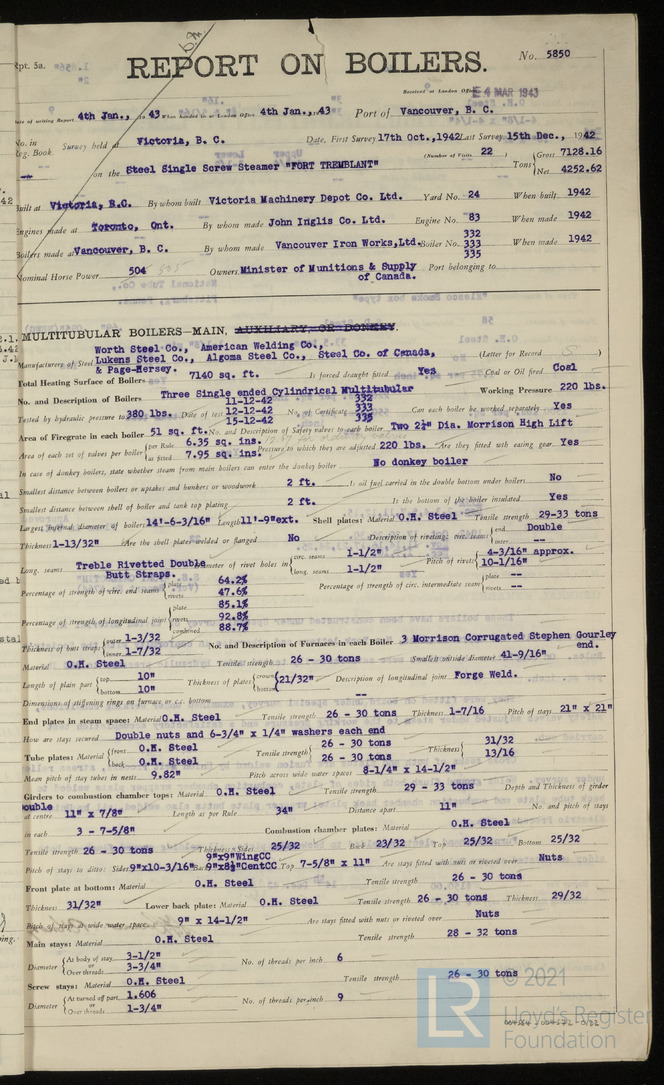 Rpt. 5a.
REPORT ON BOILERS.
No. 5850
Received at London Office 4 MAR 1943
Date of writing Report 4th Jan., 1943 When handed in at Local Office 4th Jan., 43 Port of Vancouver, B. C.
No. in Reg. Book. Survey held at Victoria, B. C. Date, First Survey 17th Oct., 1942 Last Survey 15th Dec., 1942
(Number of Visits 22)
on the Steel Single Screw Steamer "FORT TREMBLANT" Tons { Gross 7128.16 Net 4252.62
Built at Victoria, B.C. By whom built Victoria Machinery Depot Co. Ltd. Yard No. 24 When built 1942
Engines made at Toronto, Ont. By whom made John Inglis Co. Ltd. Engine No. 83 When made 1942
Boilers made at Vancouver, B. C. By whom made Vancouver Iron Works, Ltd. Boiler No. 332 333 335 When made 1942
Nominal Horse Power 504 Owners Minister of Munitions & Supply of Canada. Port belonging to
MULTITUBULAR BOILERS—MAIN, AUXILIARY, OR DONKEY.
Manufacturers of Steel Worth Steel Co., American Welding Co., Lukens Steel Co., Algoma Steel Co., Steel Co. of Canada, & Page-Hersey. (Letter for Record S)
Total Heating Surface of Boilers 7140 sq. ft. Is forced draught fitted Yes Coal or Oil fired Coal
No. and Description of Boilers Three Single ended Cylindrical Multitubular Working Pressure 220 lbs.
Tested by hydraulic pressure to 380 lbs. Date of test 11-12-42 12-12-42 15-12-42 No. of Certificate 332 333 335 Can each boiler be worked separately Yes
Area of Firegrate in each boiler 51 sq. ft. No. and Description of Safety valves to each boiler Two 2½" Dia. Morrison High Lift
Area of each set of valves per boiler { per Rule 6.35 sq. ins. as fitted 7.95 sq. ins. Pressure to which they are adjusted 220 lbs. Are they fitted with easing gear Yes
In case of donkey boilers, state whether steam from main boilers can enter the donkey boiler No donkey boiler
Smallest distance between boilers or uptakes and bunkers or woodwork 2 ft. Is oil fuel carried in the double bottom under boilers No
Smallest distance between shell of boiler and tank top plating 2 ft. Is the bottom of the boiler insulated Yes
Largest internal diameter of boilers 14'-6-3/16" Length 11'-9"ext. Shell plates: Material O.H. Steel Tensile strength 29-33 tons
Thickness 1-13/32" Are the shell plates welded or flanged No Description of riveting: circ. seams { end Double inter. --
Long. seams Treble Rivetted Double Butt Straps. Diameter of rivet holes in { circ. seams 1-1/2" long. seams 1-1/2" Pitch of rivets { 4-3/16" approx. 10-1/16"
Percentage of strength of circ. end seams { plate 64.2% rivets 47.6% Percentage of strength of circ. intermediate seam { plate -- rivets --
Percentage of strength of longitudinal joint { plate 85.1% rivets 92.8% combined 88.7%
Thickness of butt straps { outer 1-3/32 inner 1-7/32 No. and Description of Furnaces in each Boiler 3 Morrison Corrugated Stephen Gourley end.
Material O.H. Steel Tensile strength 26 - 30 tons Smallest outside diameter 41-9/16"
Length of plain part { top 10" bottom 10" Thickness of plates { crown bottom } 21/32" Description of longitudinal joint Forge Weld.
Dimensions of stiffening rings on furnace or c.c. bottom --
End plates in steam space: Material O.H. Steel Tensile strength 26 - 30 tons Thickness 1-7/16 Pitch of stays 21" x 21"
How are stays secured Double nuts and 6-3/4" x 1/4" washers each end
Tube plates: Material { front O.H. Steel back O.H. Steel Tensile strength { 26 - 30 tons 26 - 30 tons Thickness { 31/32 13/16
Mean pitch of stay tubes in nests 9.82" Pitch across wide water spaces 8-1/4" x 14-1/2"
Girders to combustion chamber tops: Material O.H. Steel Tensile strength 29 - 33 tons Depth and Thickness of girder
at centre Double 11" x 7/8" Length as per Rule 34" Distance apart 11" No. and pitch of stays
in each 3 - 7-5/8" Combustion chamber plates: Material O.H. Steel
Tensile strength 26 - 30 tons Thickness: Sides 25/32 Back 23/32 Top 25/32 Bottom 25/32
Pitch of stays to ditto: Sides 9"x10-3/16" Back 9"x9"WingCC 9"x8½"CentCC Top 7-5/8" x 11" Are stays fitted with nuts or riveted over Nuts
Front plate at bottom: Material O.H. Steel Tensile strength 26 - 30 tons
Thickness 31/32" Lower back plate: Material O.H. Steel Tensile strength 26 - 30 tons Thickness 29/32
Pitch of stays at wide water space 9" x 14-1/2" Are stays fitted with nuts or riveted over Nuts
Main stays: Material O.H. Steel Tensile strength 28 - 32 tons
Diameter { At body of stay, 3-1/2" or Over threads 3-3/4" No. of threads per inch 6
Screw stays: Material O.H. Steel Tensile strength 26 - 30 tons
Diameter { At turned off part, 1.606 or Over threads 1-3/4" No. of threads per inch 9
LR © 2021
Lloyd's Register
Foundation